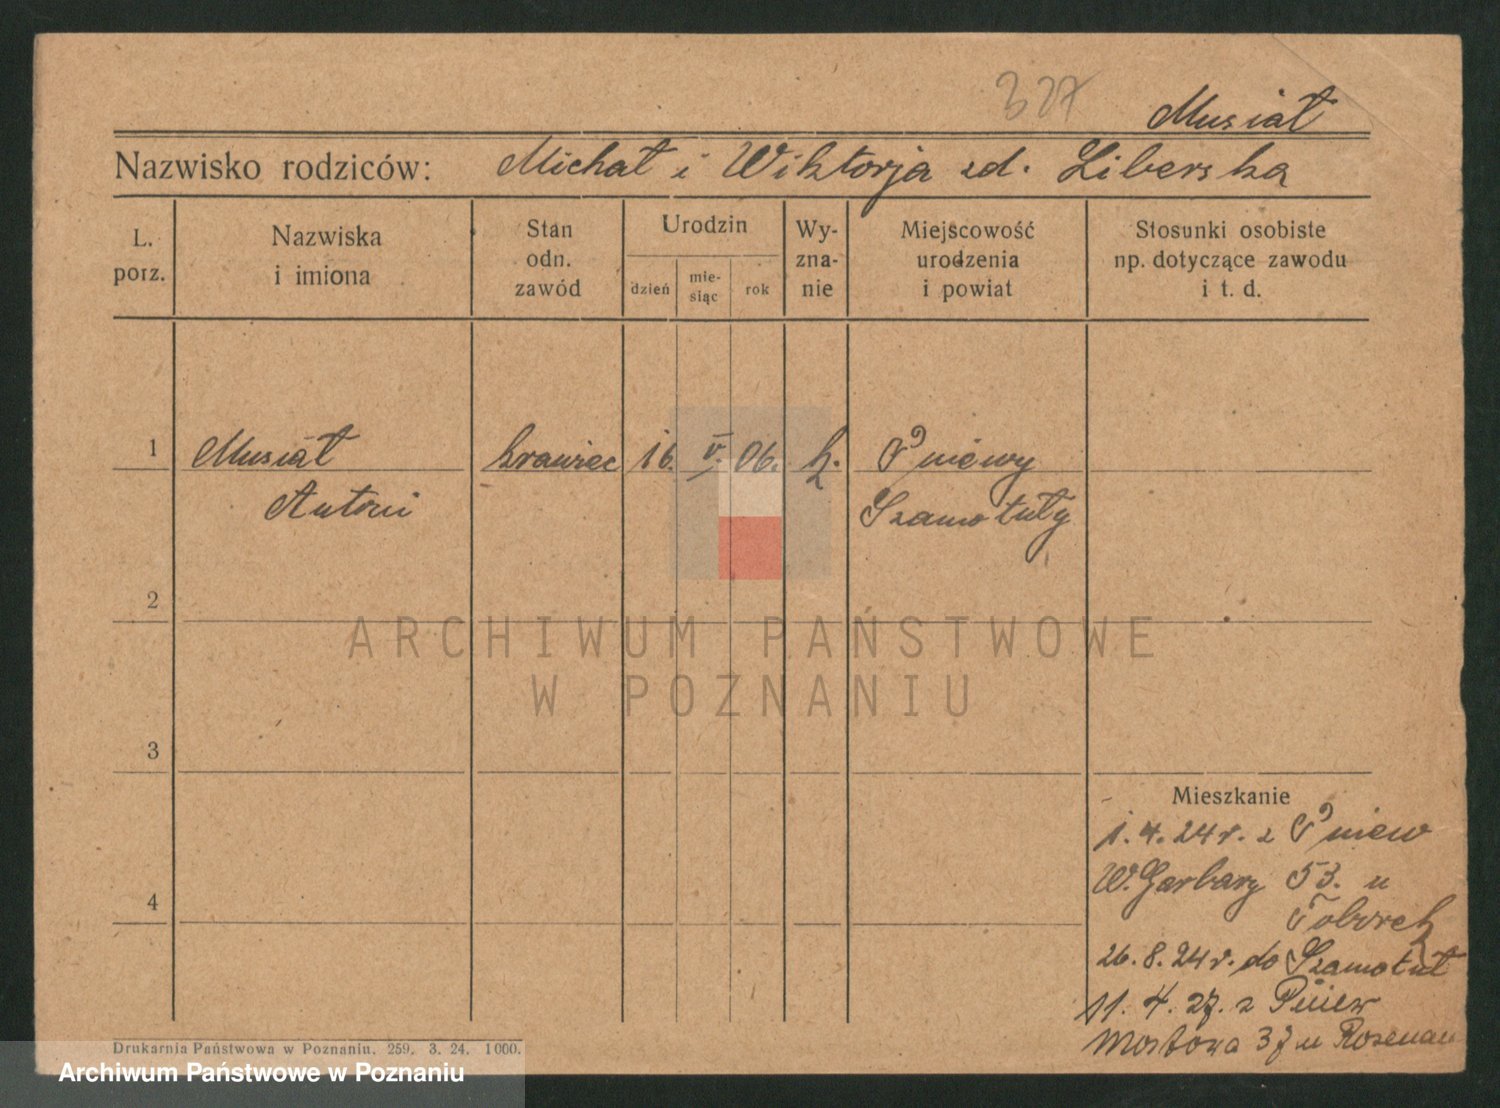 327
Musiał
Nazwisko rodziców: Michał i Wiktorja zd. Liberska
L. porz.
Nazwiska i imiona
Stan odn. zawód
Urodzin
dzień
mie-siąc
rok
Wy-zna-nie
Miejscowość urodzenia i powiat
Stosunki osobiste np. dotyczące zawodu i t. d.
1 Musiał krawiec 16. V. 06. k. Pniewy
Antoni Szamotuły
2
ARCHIWUM PAŃSTWOWE
W POZNANIU
3
Mieszkanie
1.4.24 r. z Pniew
W. Garbary 53. u
4
26.8.24 r. do Szamotuł
11.4.27. z Pniew
Mostowa 37 u Rosenau
Drukarnia Państwowa w Poznaniu. 259. 3. 24. 1000.
Archiwum Państwowe w Poznaniu